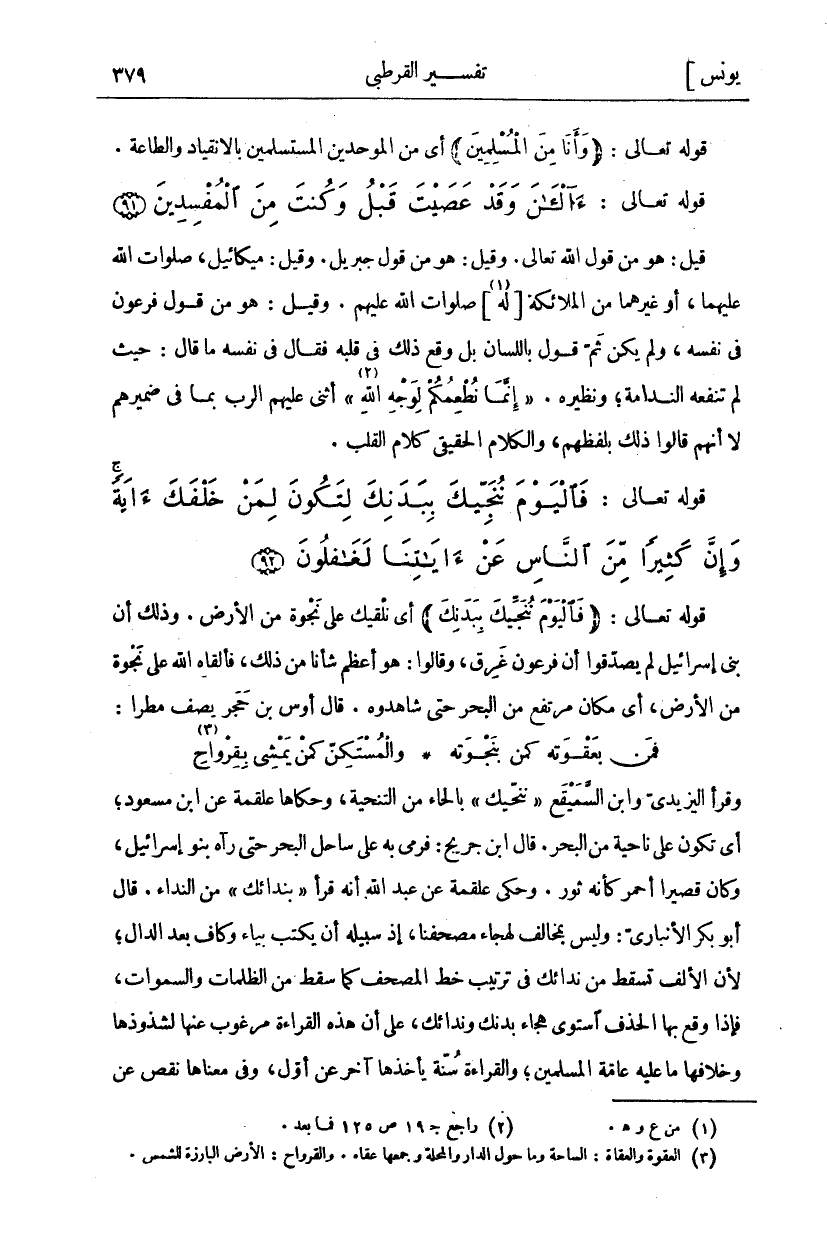 يونس ] تفسير القرطبى ٣٧٩
قوله تعالى : ﴿ وَأَنَا مِنَ الْمُسْلِمِينَ ﴾ أى من الموحدين المستسلمين بالانقياد والطاعة .
قوله تعالى : ءَآلْـَٰٔنَ وَقَدْ عَصَيْتَ قَبْلُ وَكُنتَ مِنَ ٱلْمُفْسِدِينَ ﴿٩١﴾
قيل : هو من قول الله تعالى . وقيل : هو من قول جبريل . وقيل : ميكائيل ، صلوات الله
عليهما ، أو غيرهما من الملائكة [ له ](١) صلوات الله عليهم . وقيل : هو من قول فرعون
فى نفسه ، ولم يكن ثَمّ قول باللسان بل وقع ذلك فى قلبه فقال فى نفسه ما قال : حيث
لم تنفعه الندامة ؛ ونظيره . « إِنَّمَا نُطْعِمُكُمْ لِوَجْهِ اللهِ »(٢) أثنى عليهم الرب بما فى ضميرهم
لا أنهم قالوا ذلك بلفظهم ، والكلام الحقيقى كلام القلب .
قوله تعالى : فَٱلْيَوْمَ نُنَجِّيكَ بِبَدَنِكَ لِتَكُونَ لِمَنْ خَلْفَكَ ءَايَةً ۚ
وَإِنَّ كَثِيرًا مِّنَ ٱلنَّاسِ عَنْ ءَايَٰتِنَا لَغَٰفِلُونَ ﴿٩٢﴾
قوله تعالى : ﴿ فَٱلْيَوْمَ نُنَجِّيكَ بِبَدَنِكَ ﴾ أى نلقيك على نَجْوة من الأرض . وذلك أن
بنى إسرائيل لم يصدّقوا أن فرعون غَرِق ، وقالوا : هو أعظم شأنا من ذلك ، فألقاه الله على نَجْوة
من الأرض ، أى مكان مرتفع من البحر حتى شاهدوه . قال أوس بن حَجَر يصف مطرا :
فَمَن بعَقْوَته كمن بنَجْوَته * والْمُسْتَكِنّ كمَنْ يَمْشِى بِقِرْواح(٣)
وقرأ اليزيدىّ وابن السَّمَيْقَع « ننحّيك » بالحاء من التنحية ، وحكاها علقمة عن ابن مسعود ؛
أى تكون على ناحية من البحر . قال ابن جريج : فرمى به على ساحل البحر حتى رآه بنو إسرائيل ،
وكان قصيرا أحمر كأنه ثور . وحكى علقمة عن عبد الله أنه قرأ « بندائك » من النداء . قال
أبو بكر الأنبارىّ : وليس بمخالف لهجاء مصحفنا ، إذ سبيله أن يكتب بياء وكاف بعد الدال ؛
لأن الألف تسقط من ندائك فى ترتيب خط المصحف كما سقط من الظلمات والسموات ،
فإذا وقع بها الحذف ٱستوى هجاء بدنك وندائك ، على أن هذه القراءة مرغوب عنها لشذوذها
وخلافها ما عليه عامة المسلمين ؛ والقراءة سُنّة يأخذها آخر عن أوّل ، وفى معناها نقص عن
(١) من ع و ه . (٢) راجع جـ ١٩ ص ١٢٥ فما بعد .
(٣) العقوة والعقاة : الساحة وما حول الدار والمحلة وجمعها عقاء . والقرواح : الأرض البارزة للشمس .